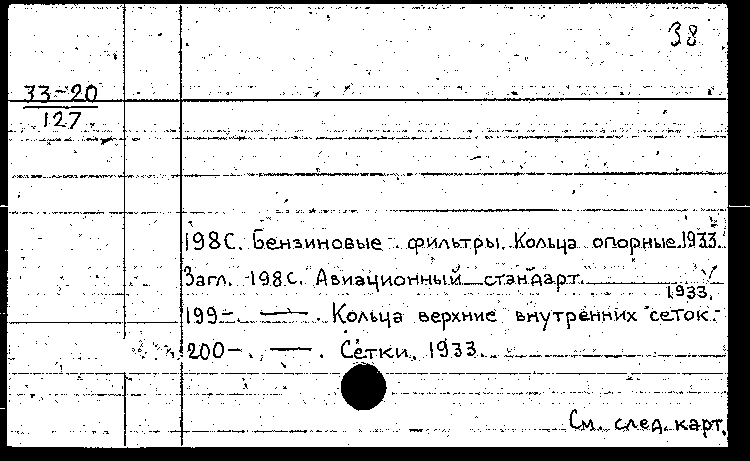 38
33-20
127
198С. Бензиновые фильтры. Кольца опорные. 1933.
Загл. 198С. Авиационный стандарт.
199-. —. Кольца верхние внутренних сеток. 1933.
200-. —. Сетки. 1933.
См. след. карт.